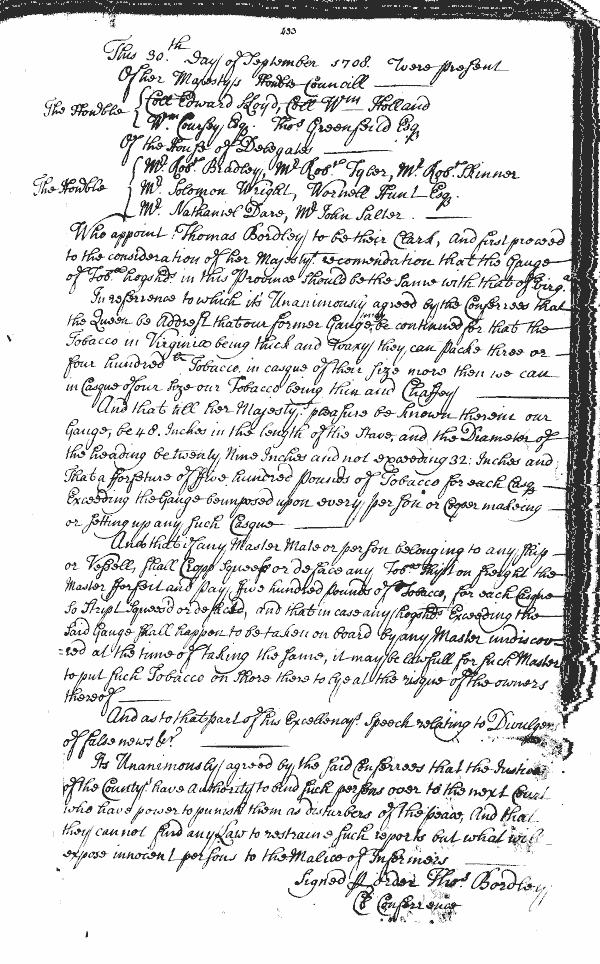 433
This 30th Day of September 1708. Were present
Of her Majestys Honble Councill
The Honble { Coll Edward Lloyd, Coll Wm Holland
Wm Coursey Esq. Thos Greenfeild Esq
Of the House of Delegates
The Honble { Mr. Robt Bradley, Mr Robt Tyler, Mr. Robt Skinner
Mr. Solomon Wright, Wornell Hunt Esq.
Mr. Nathaniel Dare, Mr John Salter.
Who appoint Thomas Bordley to be their Clark, And first proceed
to the consideration of her Majestys recomendation that the Gauge
of Tobco hogshds in this Province should be the same with that of Virga
In reference to which its Unanimously agreed by the Conferrees that
the Queen be Addrest that our former Gauge may be continued for that the
Tobacco in Virginia being thick and Waxy they can Packe three or
four hundred lb Tobacco in casque of their size more then we can
in Casque of our Size our Tobacco being thin and Chaffey
And that till her Majestys pleasure be known therein our
Gauge, be 48. Inches in the length of the Stave, and the Diameter of
the heading be twenty Nine Inches and not exceeding 32: Inches and
That a forfeture of five hundred Pounds of Tobacco for each Casq
Exceeding the Gauge be imposed upon every person or Coper makeing
or setting up any such Casque
And that if any Master Mate or person belonging to any Ship
or Vessell, shall Squeese or deface any Tobco Shipt on freight the
Master forfeit and pay five hundred Pounds of Tobacco, for each Casque
so Stript Squeezd or defaced, and that in case any hogshd Exceeding the
said Gauge shall happen to be taken on board by any Master undiscov
=red at the time of taking the same, it may be lawfull for such Master
to put such Tobacco on Shore there to lye at the risque of the owners
thereof
And as to that part of his Excellencys Speech relating to Divulgers
of false news &c
Its Unanimously agreed by the said Conferrees that the Justices
of the Countys have authority to bind such persons over to the next Court
who have power to punish them as disturbers of the peace, And that
they cannot find any Law to restraine such reports but what will
expose innocent persons to the Malice of Informers
Signed p order Thos Bordley
Cl Conferrence